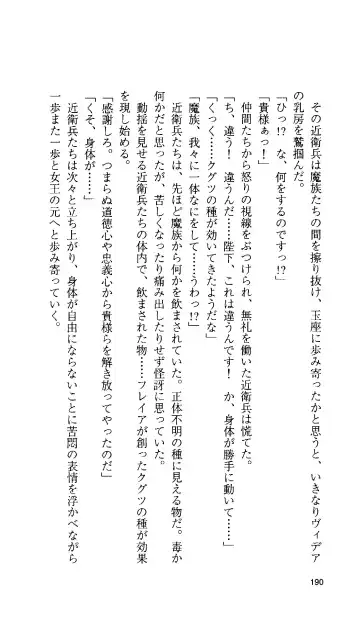 その近衛兵は魔族たちの間を擦り抜け、玉座に歩み寄ったかと思うと、いきなりヴィデア
の乳房を鷲掴んだ。
「ひっ!?　な、何をするのですっ!?」
「貴様ぁっ！」
　仲間たちから怒りの視線をぶつけられ、無礼を働いた近衛兵は慌てた。
「ち、違う！　違うんだ……陛下、これは違うんです！　か、身体が勝手に動いて……」
「くっく……クグツの種が効いてきたようだな」
「魔族、我々に一体なにをして……うわっ!?」
　近衛兵たちは、先ほど魔族から何かを飲まされていた。正体不明の種に見える物だ。毒か
何かだと思ったが、苦しくなったり痛み出したりせず怪訝に思っていた。
　動揺を見せる近衛兵たちの体内で、飲まされた物……フレイアが創ったクグツの種が効果
を現し始める。
「感謝しろ。つまらぬ道徳心や忠義心から貴様らを解き放ってやったのだ」
「くそ、身体が……」
　近衛兵たちは次々と立ち上がり、身体が自由にならないことに苦悶の表情を浮かべながら
一歩また一歩と女王の元へと歩み寄っていく。
190